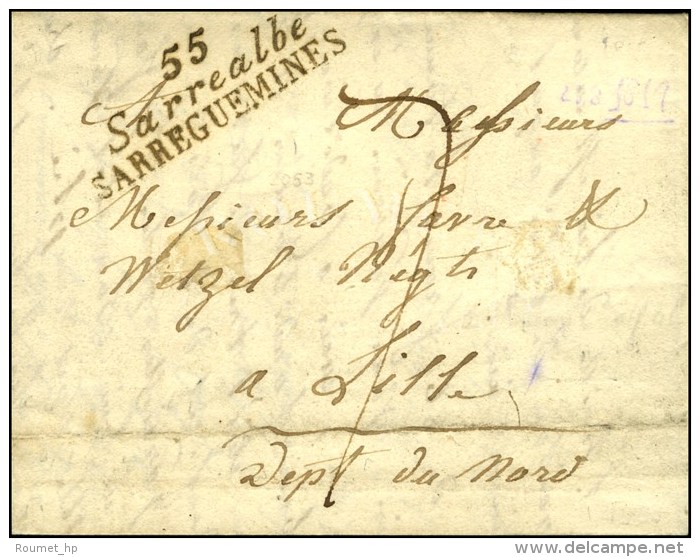 55
Sarrealbe
SARREGUEMINES
Messieurs
Messieurs Favre &
Wetzel Negts
a Lille
Dept du Nord
Roumet_hp
www.delcampe.net